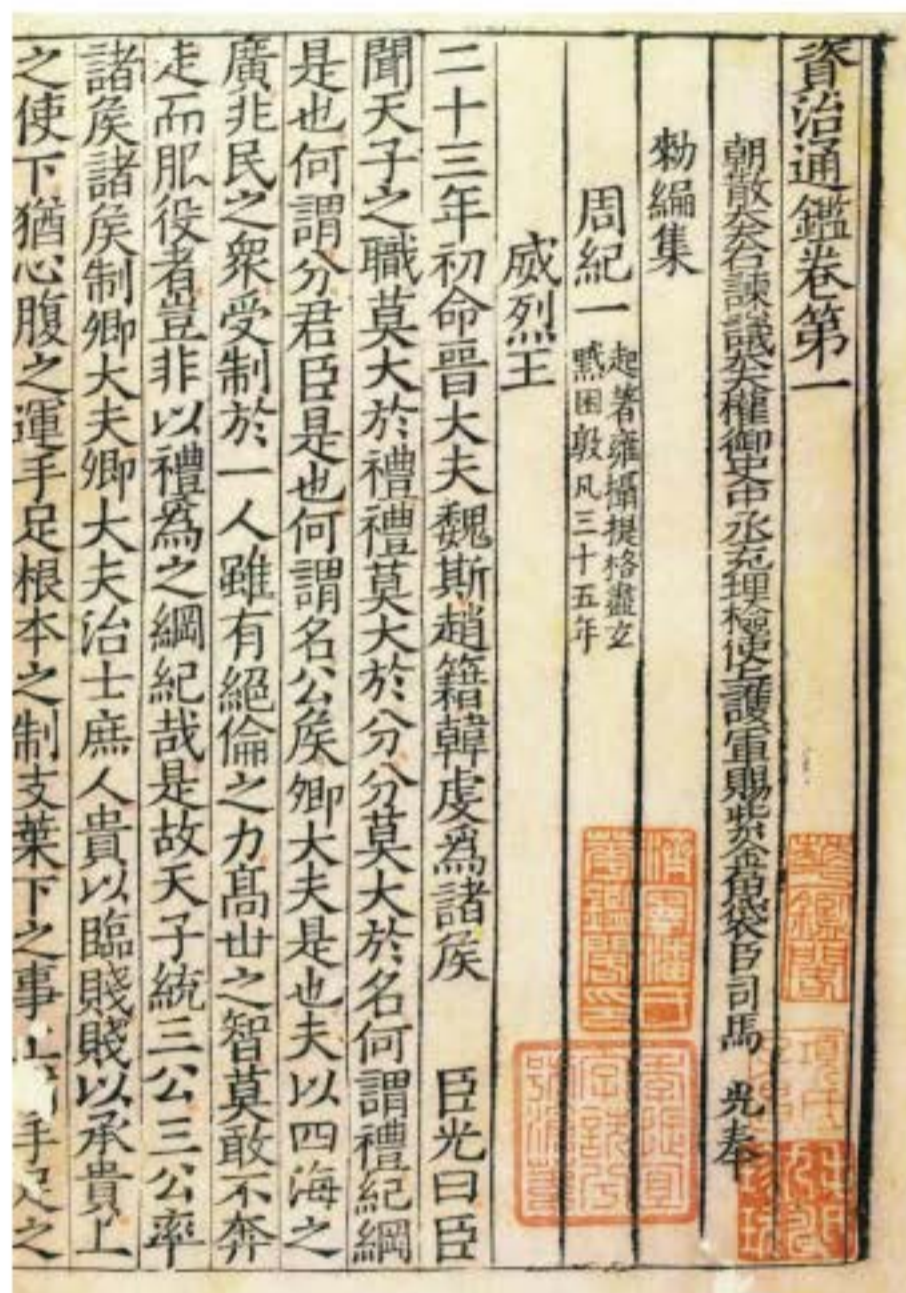 資治通鑑卷第一
朝散大夫右諫議大夫權御史中丞充理檢使上護軍賜紫金魚袋臣司馬 光奉
勑編集
周紀一 起著雍攝提格盡玄
黓困敦凡三十五年
威烈王
二十三年初命晉大夫魏斯趙籍韓虔爲諸侯 臣光曰臣
聞天子之職莫大於禮禮莫大於分分莫大於名何謂禮紀綱
是也何謂分君臣是也何謂名公侯卿大夫是也夫以四海之
廣非民之衆受制於一人雖有絕倫之力高世之智莫敢不奔
走而服役者豈非以禮爲之綱紀哉是故天子統三公三公率
諸侯諸侯制卿大夫卿大夫治士庶人貴以臨賤賤以承貴上
之使下猶心腹之運手足根本之制支葉下之事上 手足之